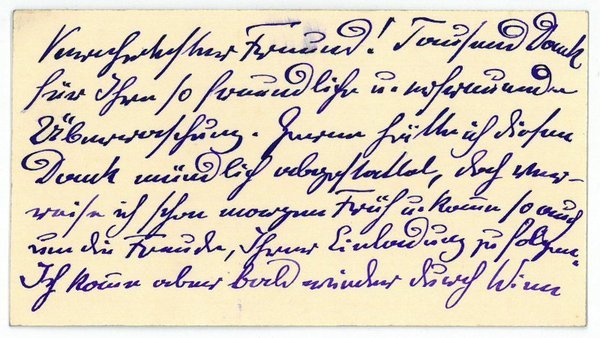 Verehrtester Freund! Tausend Dank
für Ihre so freundliche u. erfreuende
Überraschung. Gerne hätte ich diesen
Dank mündlich abgestattet, doch ver-
reise ich schon morgen Früh u. komme so auch
um die Freude, Ihrer Einladung zu folgen.
Ich komme aber bald wieder durch Wien